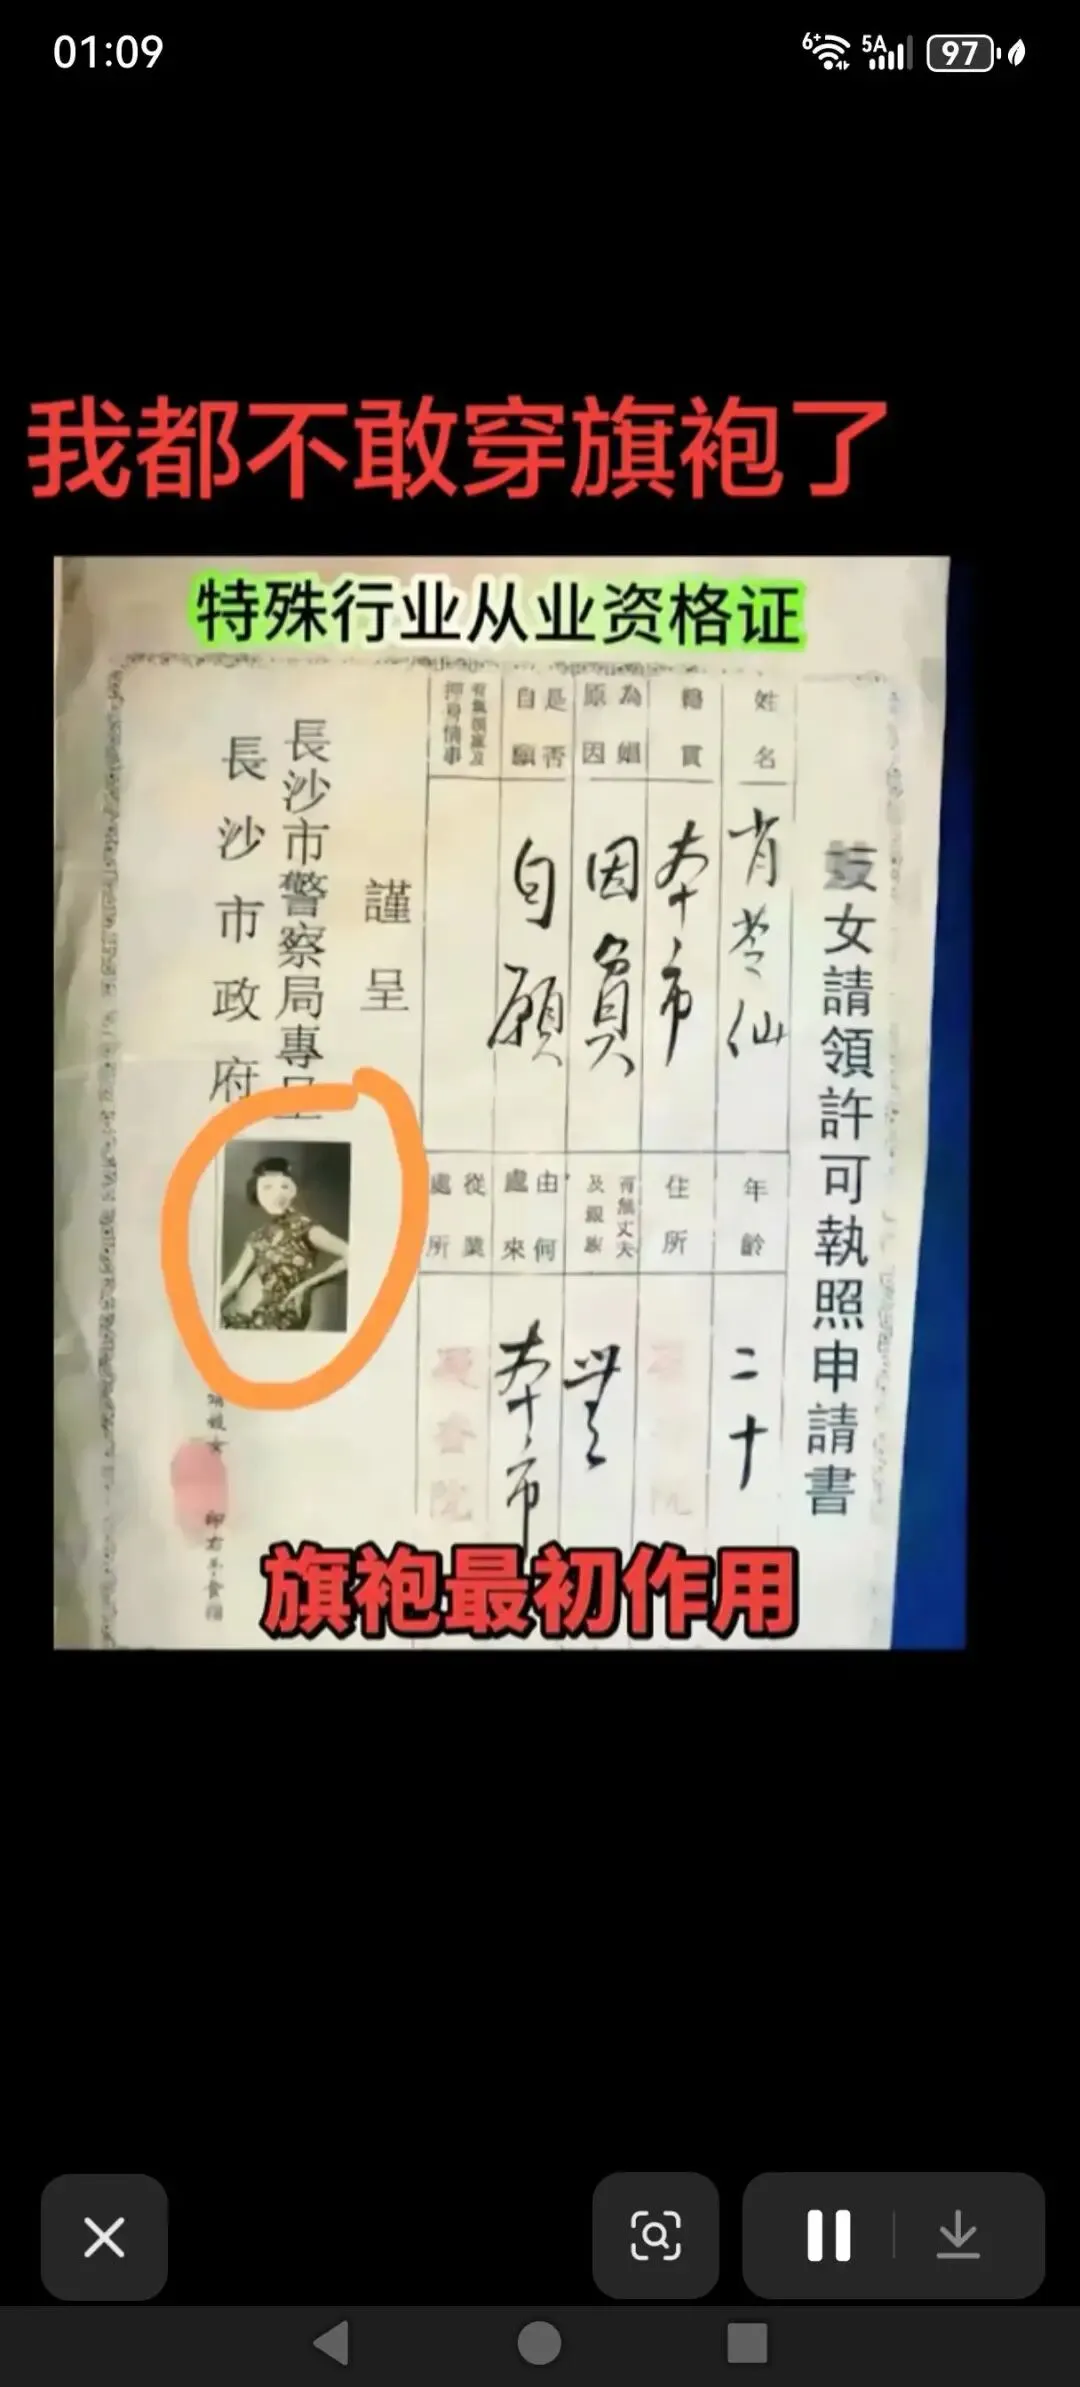 01:09
6+
5A
97
我都不敢穿旗袍了
特殊行业从业资格证
妓女請領許可執照申請書
姓名
肖苓仙
年齡
二十
籍貫
本市
住所
為娼原因
因貧
有無丈夫及親族
無
是否自願
自願
由何處來
本市
有無領家及押賬情事
從業處所
謹呈
長沙市警察局專呈
長沙市政府
妓女
印右手食指
旗袍最初作用